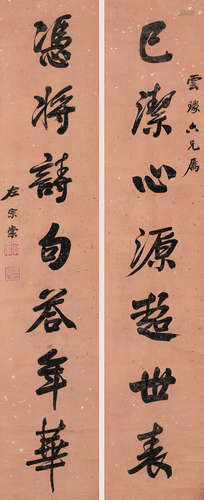 雲緣六兄屬
已潔心源超世表
憑將詩句答年華
左宗棠